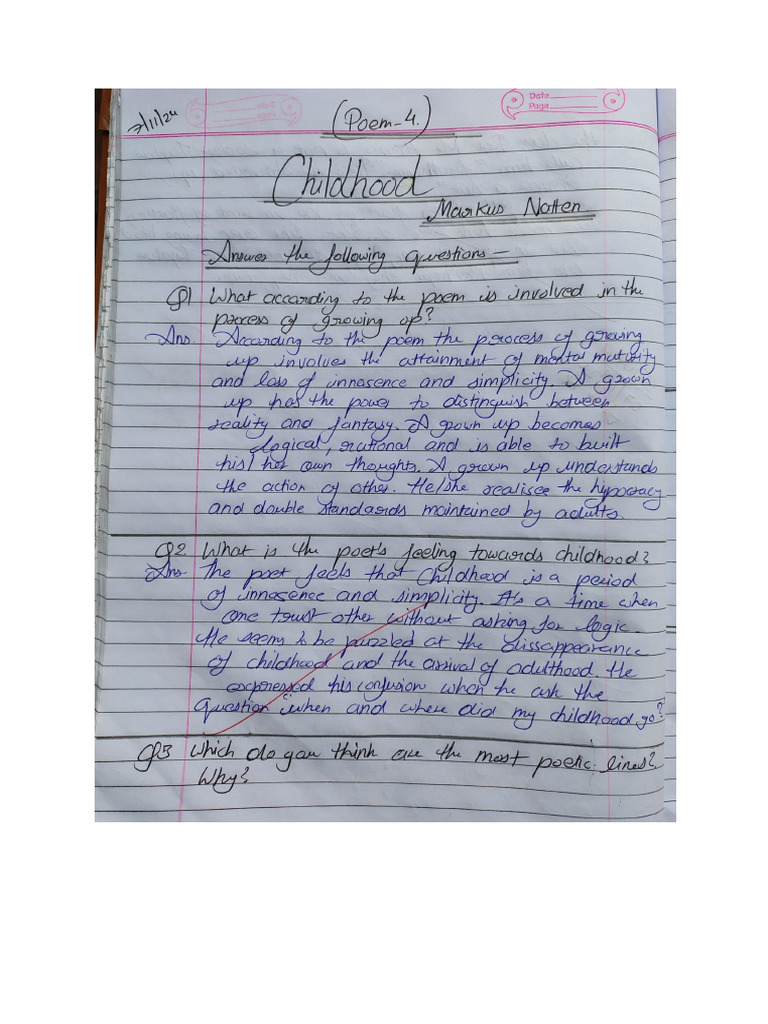 7/11/24
(Poem-4.)
Date
Page
Childhood
Markus Natten
Answer the following questions—
Q1 What according to the poem is involved in the
process of growing up?
Ans. According to the poem the process of growing
up involves the attainment of mental maturity
and loss of innasence and simplicity. A grown
up has the power to distinguish between
reality and fantasy. A grown up becomes
logical, rational and is able to built
his/her own thoughts. A grown up understands
the action of other. He/she realises the hypocracy
and double standards maintained by adults.
Q2 What is the poet's feeling towards childhood?
Ans The poet feels that Childhood is a period
of innasence and simplicity. It's a time when
one trust other without asking for logic.
He seem to be puzzled at the dissappearance
of childhood and the arrival of adulthood. He
expressed his confusion when he ask the
Question :when and where did my childhood go?
Q3 Which do you think are the most poetic lines?
Why?